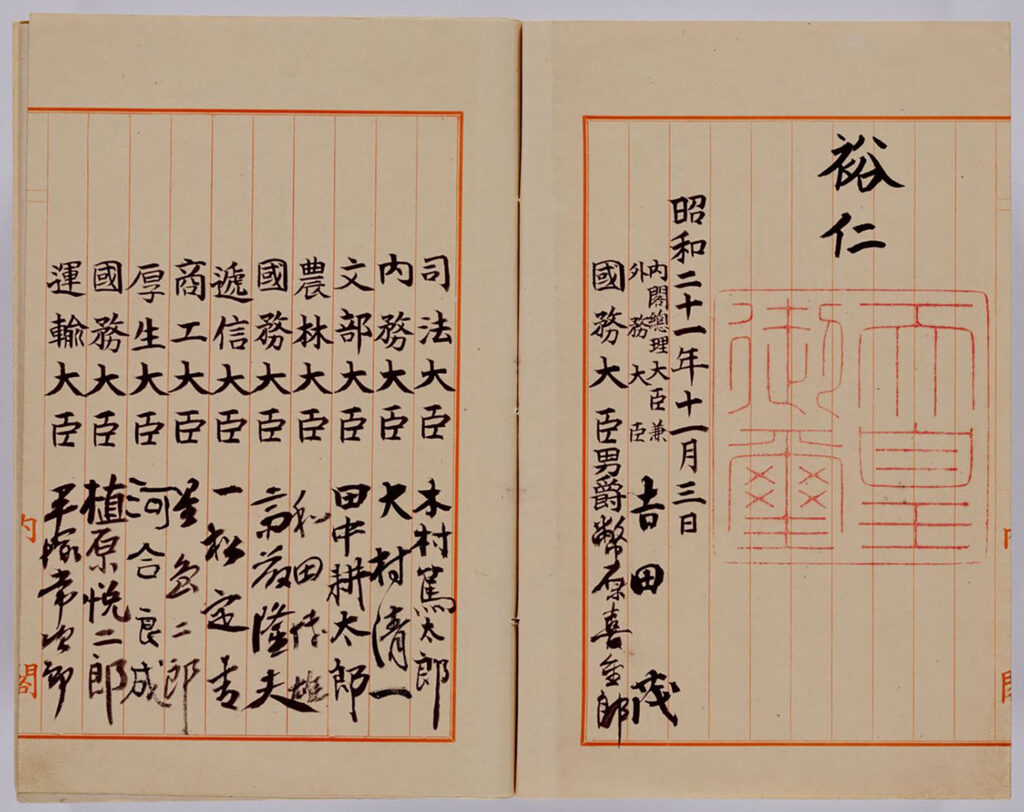 裕仁
天皇御璽
昭和二十一年十一月三日
内閣總理大臣兼
外務大臣 吉田茂
國務大臣男爵幣原喜重郎
司法大臣 木村篤太郎
内務大臣 大村清一
文部大臣 田中耕太郎
農林大臣 和田博雄
國務大臣 斎藤隆夫
遞信大臣 一松定吉
商工大臣 星島二郎
厚生大臣 河合良成
國務大臣 植原悦二郎
運輸大臣 平塚常次郎
内閣